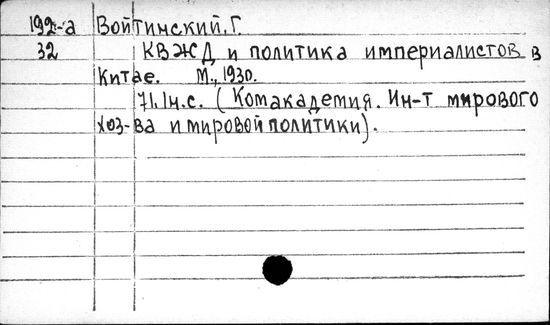 192-а Войтинский, Г.
32 КВЖД и политика империалистов в
Китае. М., 1930.
71,1н.с. (Комакадемия. Ин-т мирового
хоз-ва и мировой политики).